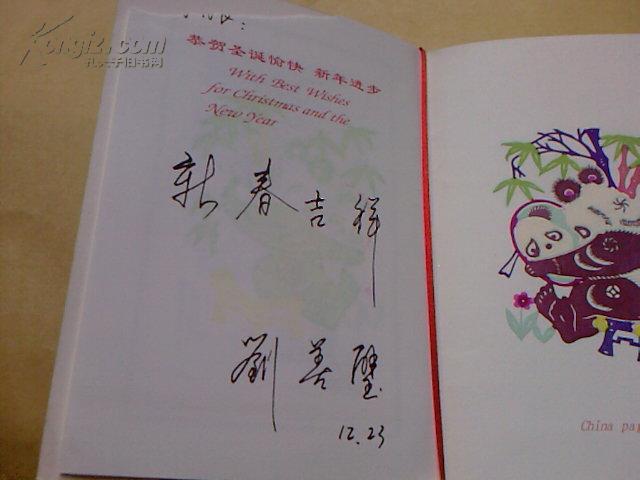 Kongfz.com
孔夫子旧书网
恭贺圣诞愉快 新年进步
With Best Wishes
for Christmas and the
New Year
新春吉祥
劉善璧
12.23
China pap